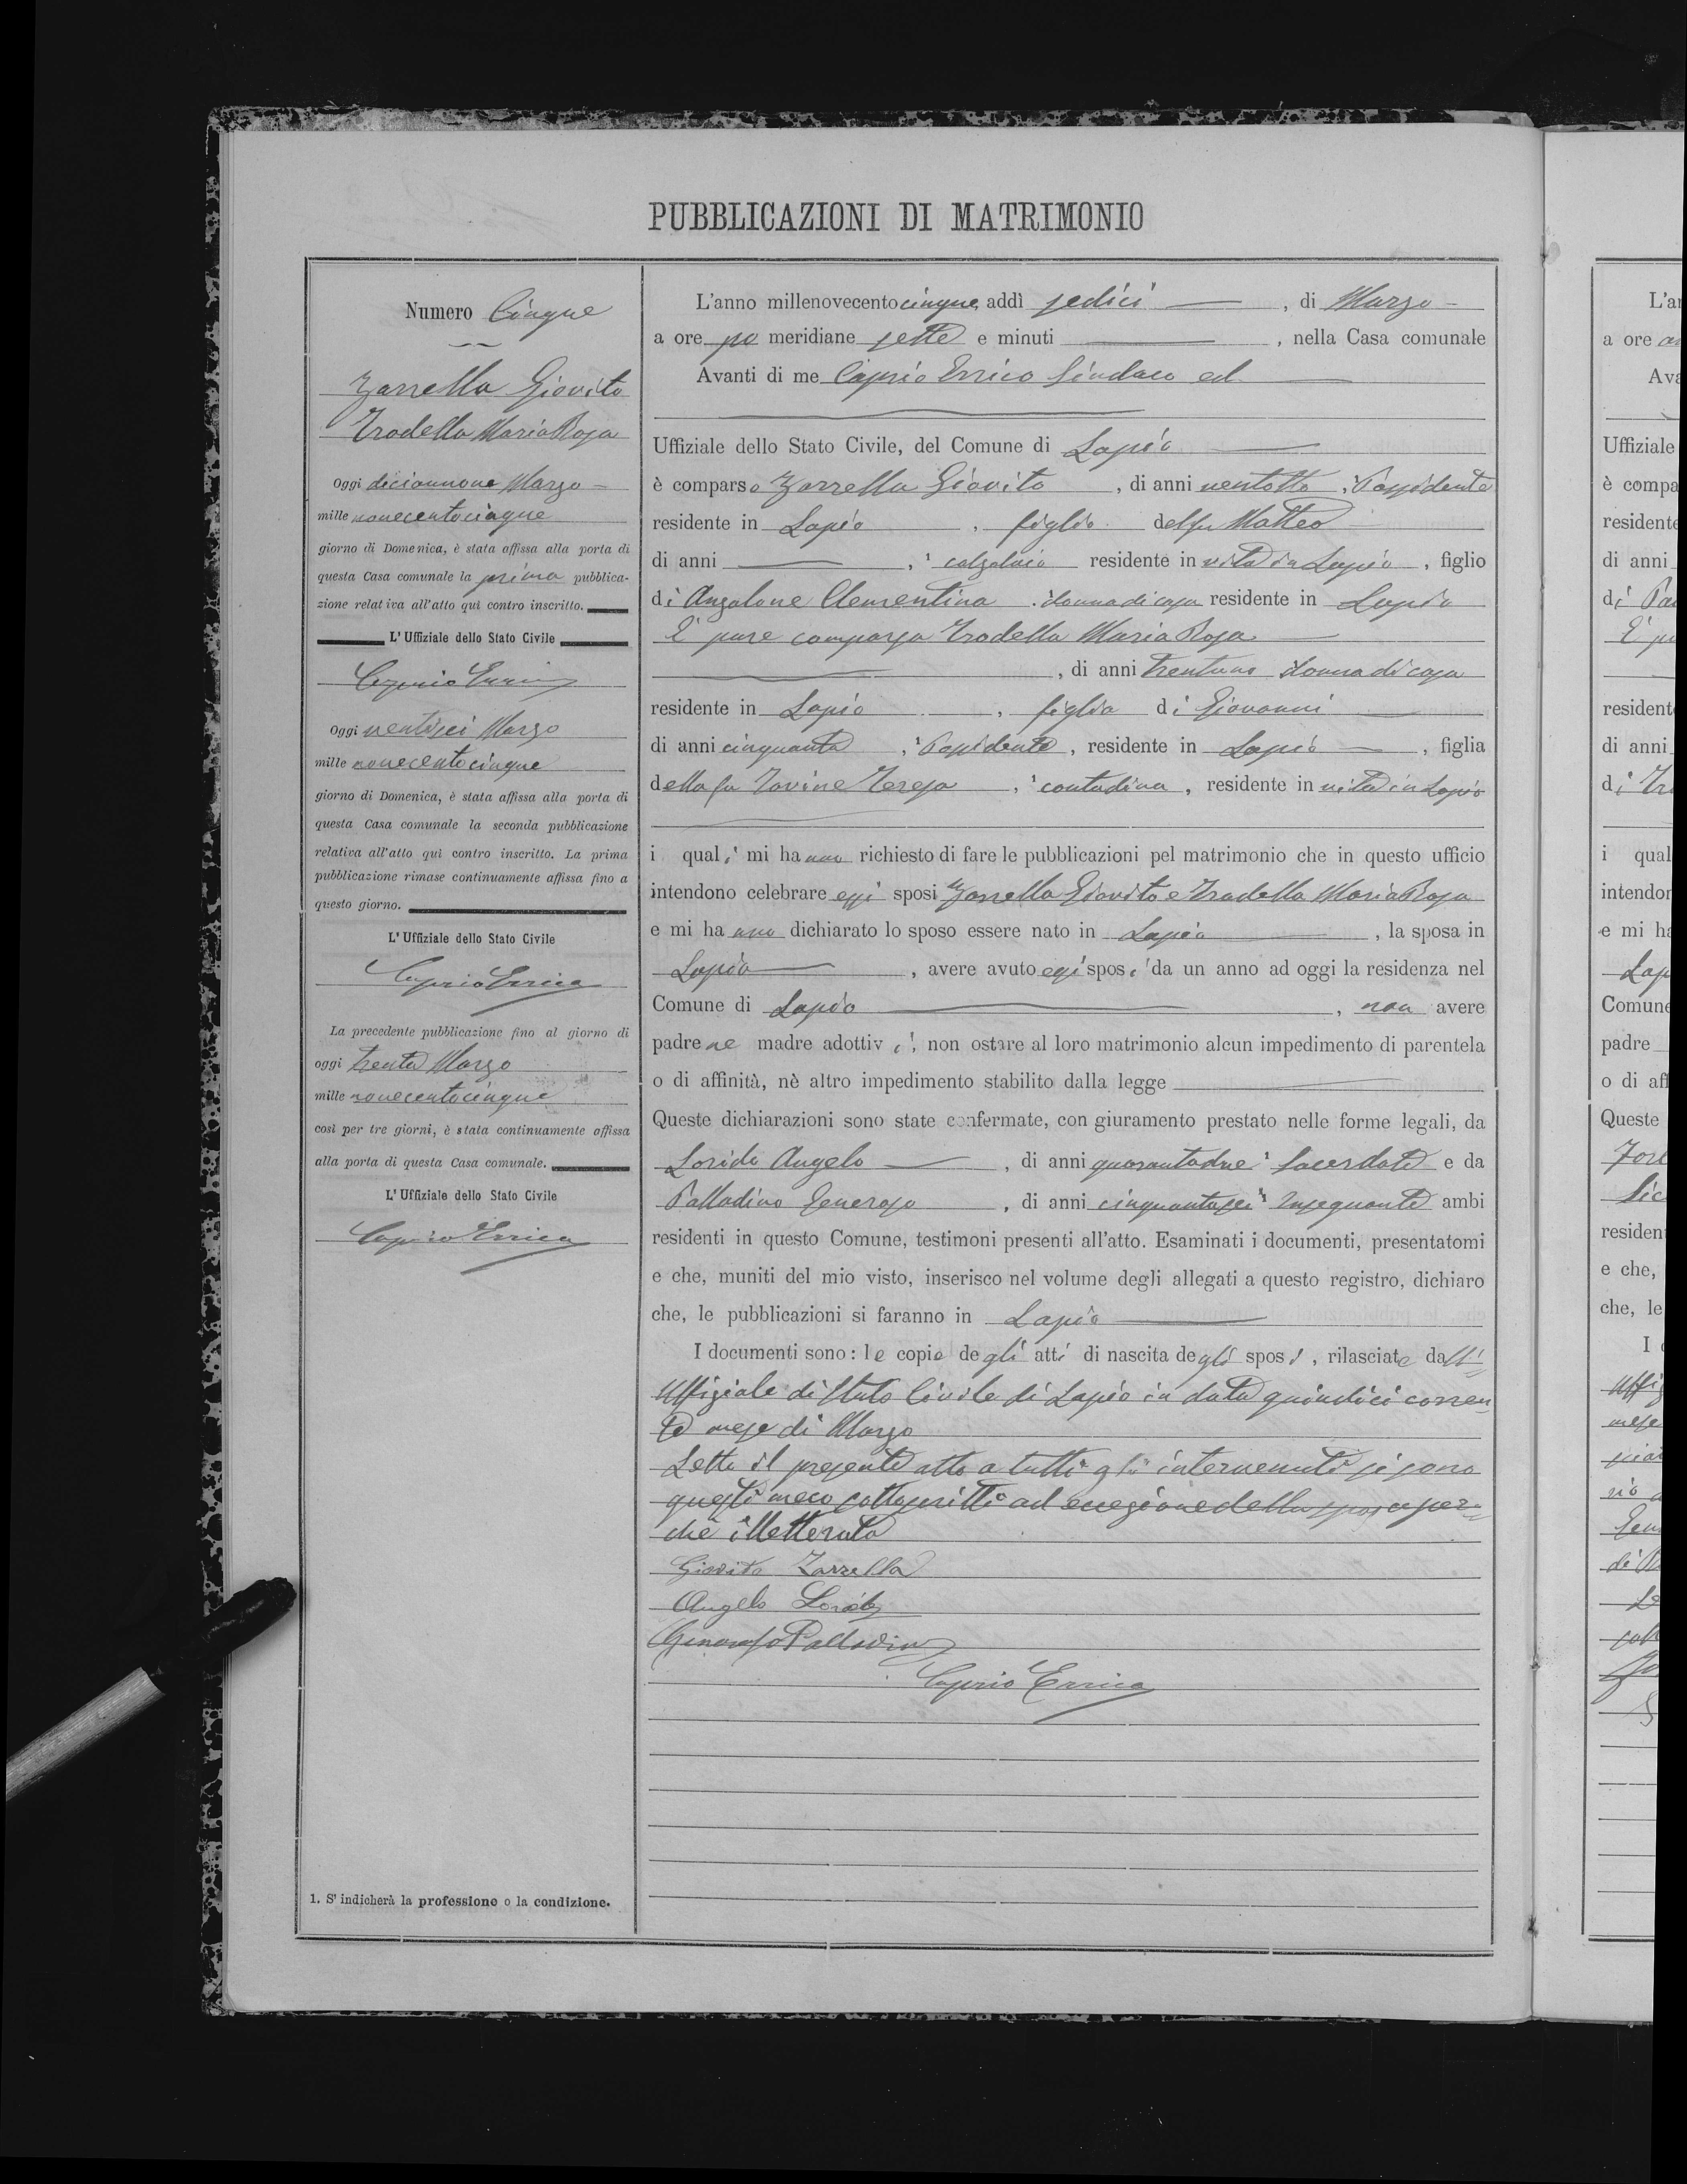 PUBBLICAZIONI DI MATRIMONIO
Numero Cinque
Zarrella Giovito
Trodella Maria Rosa
Oggi diciannove Marzo
mille novecentocinque
giorno di Domenica, è stata affissa alla porta di
questa Casa comunale la prima pubblica-
zione relativa all'atto quì contro inscritto.
L'Uffiziale dello Stato Civile
Caprio Errico
Oggi ventisei Marzo
mille novecentocinque
giorno di Domenica, è stata affissa alla porta di
questa Casa comunale la seconda pubblicazione
relativa all'atto quì contro inscritto. La prima
pubblicazione rimase continuamente affissa fino a
questo giorno.
L'Uffiziale dello Stato Civile
Caprio Errico
La precedente pubblicazione fino al giorno di
oggi trenta Marzo
mille novecentocinque
così per tre giorni, è stata continuamente affissa
alla porta di questa Casa comunale.
L'Uffiziale dello Stato Civile
Caprio Errico
1. S'indicherà la professione o la condizione.
L'anno millenovecentocinque, addì sedici, di Marzo
a ore po meridiane sette e minuti , nella Casa comunale
Avanti di me Caprio Errico Sindaco ed
Uffiziale dello Stato Civile, del Comune di Lapio
è comparso Zarrella Giovito, di anni ventotto, Possidente
residente in Lapio, figlio del fu Matteo
di anni , calzolaio residente in vita in Lapio, figlio
di Anzalone Clementina donna di casa residente in Lapio
È pure comparsa Trodella Maria Rosa
, di anni trentuno donna di casa
residente in Lapio, figlia di Giovanni
di anni cinquanta, Possidente, residente in Lapio, figlia
della fu Iovine Teresa, contadina, residente in vita in Lapio
i quali mi hanno richiesto di fare le pubblicazioni pel matrimonio che in questo ufficio
intendono celebrare essi sposi Zarrella Giovito e Trodella Maria Rosa
e mi hanno dichiarato lo sposo essere nato in Lapio, la sposa in
Lapio, avere avuto essi sposi da un anno ad oggi la residenza nel
Comune di Lapio, non avere
padre ne madre adottivi, non ostare al loro matrimonio alcun impedimento di parentela
o di affinità, nè altro impedimento stabilito dalla legge
Queste dichiarazioni sono state confermate, con giuramento prestato nelle forme legali, da
Lorido Angelo, di anni quarantadue Sacerdote e da
Palladino Generoso, di anni cinquantasei Insegnante ambi
residenti in questo Comune, testimoni presenti all'atto. Esaminati i documenti, presentatomi
e che, muniti del mio visto, inserisco nel volume degli allegati a questo registro, dichiaro
che, le pubblicazioni si faranno in Lapio
I documenti sono: le copie degli atti di nascita degli sposi, rilasciate dall'
Uffiziale di Stato Civile di Lapio in data quindici corren=
te mese di Marzo
Letto il presente atto a tutti gli intervenuti si sono
questi meco sottoscritti ad eccezione della sposa per=
chè illetterata
Giovito Zarrella
Angelo Lorido
Generoso Palladino
Caprio Errico